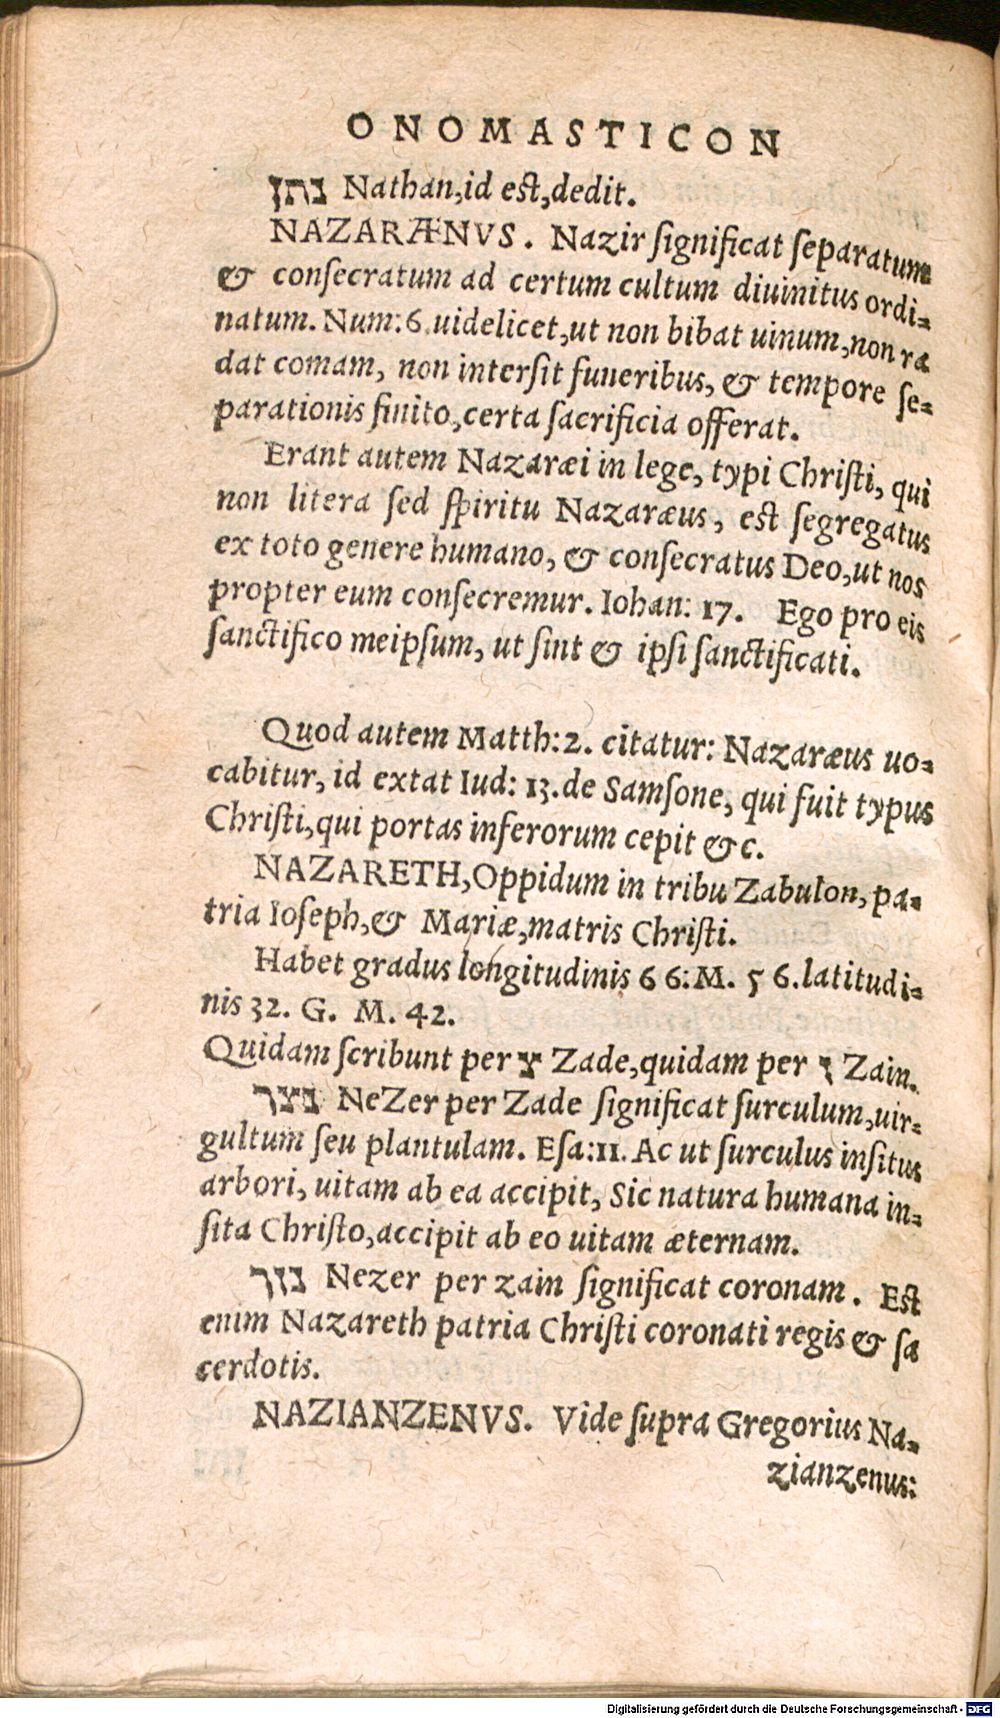 ONOMASTICON
נתן Nathan,id est,dedit.
NAZARÆNVS. Nazir ſignificat ſeparatum
& conſecratum ad certum cultum diuinitus ordi=
natum. Num:6.uidelicet,ut non bibat uinum,non ra
dat comam, non interſit funeribus, & tempore ſe=
parationis finito,certa ſacrificia offerat.
Erant autem Nazaræi in lege, typi Chriſti, qui
non litera ſed ſpiritu Nazaræus, est ſegregatus
ex toto genere humano, & conſecratus Deo,ut nos
propter eum conſecremur. Iohan: 17. Ego pro eis
ſanctifico meipſum, ut ſint & ipſi ſanctificati.
Quod autem Matth:2. citatur: Nazaræus uo=
cabitur, id extat Iud: 13.de Samſone, qui fuit typus
Chriſti,qui portas inferorum cepit &c.
NAZARETH,Oppidum in tribu Zabulon, pa=
tria Ioſeph,& Mariæ,matris Chriſti.
Habet gradus longitudinis 66:M. 56.latitudi=
nis 32. G. M. 42.
Quidam ſcribunt per צ Zade,quidam per ז Zain.
נצר NeZer per Zade ſignificat ſurculum,uir=
gultum ſeu plantulam. Eſa:11. Ac ut ſurculus inſitus
arbori, uitam ab ea accipit, Sic natura humana in=
ſita Chriſto,accipit ab eo uitam æternam.
נזר Nezer per zain ſignificat coronam. Est
enim Nazareth patria Chriſti coronati regis & ſa
cerdotis.
NAZIANZENVS. Vide ſupra Gregorius Na=
zianzenus:
Digitalisierung gefördert durch die Deutsche Forschungsgemeinschaft - DFG